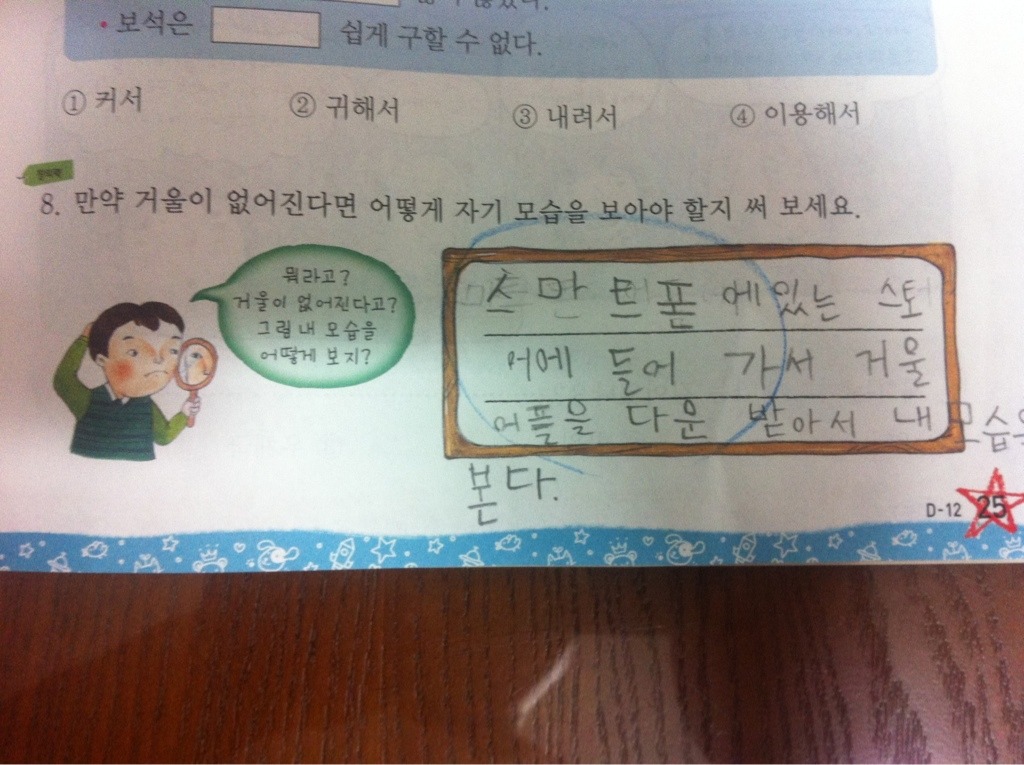 • 보석은 쉽게 구할 수 없다.
① 커서 ② 귀해서 ③ 내려서 ④ 이용해서
8. 만약 거울이 없어진다면 어떻게 자기 모습을 보아야 할지 써 보세요.
뭐라고?
거울이 없어진다고?
그럼 내 모습을
어떻게 보지?
스마트폰에 있는 스토
어에 들어 가서 거울
어플을 다운 받아서 내 모습을
본다.
D-12 25